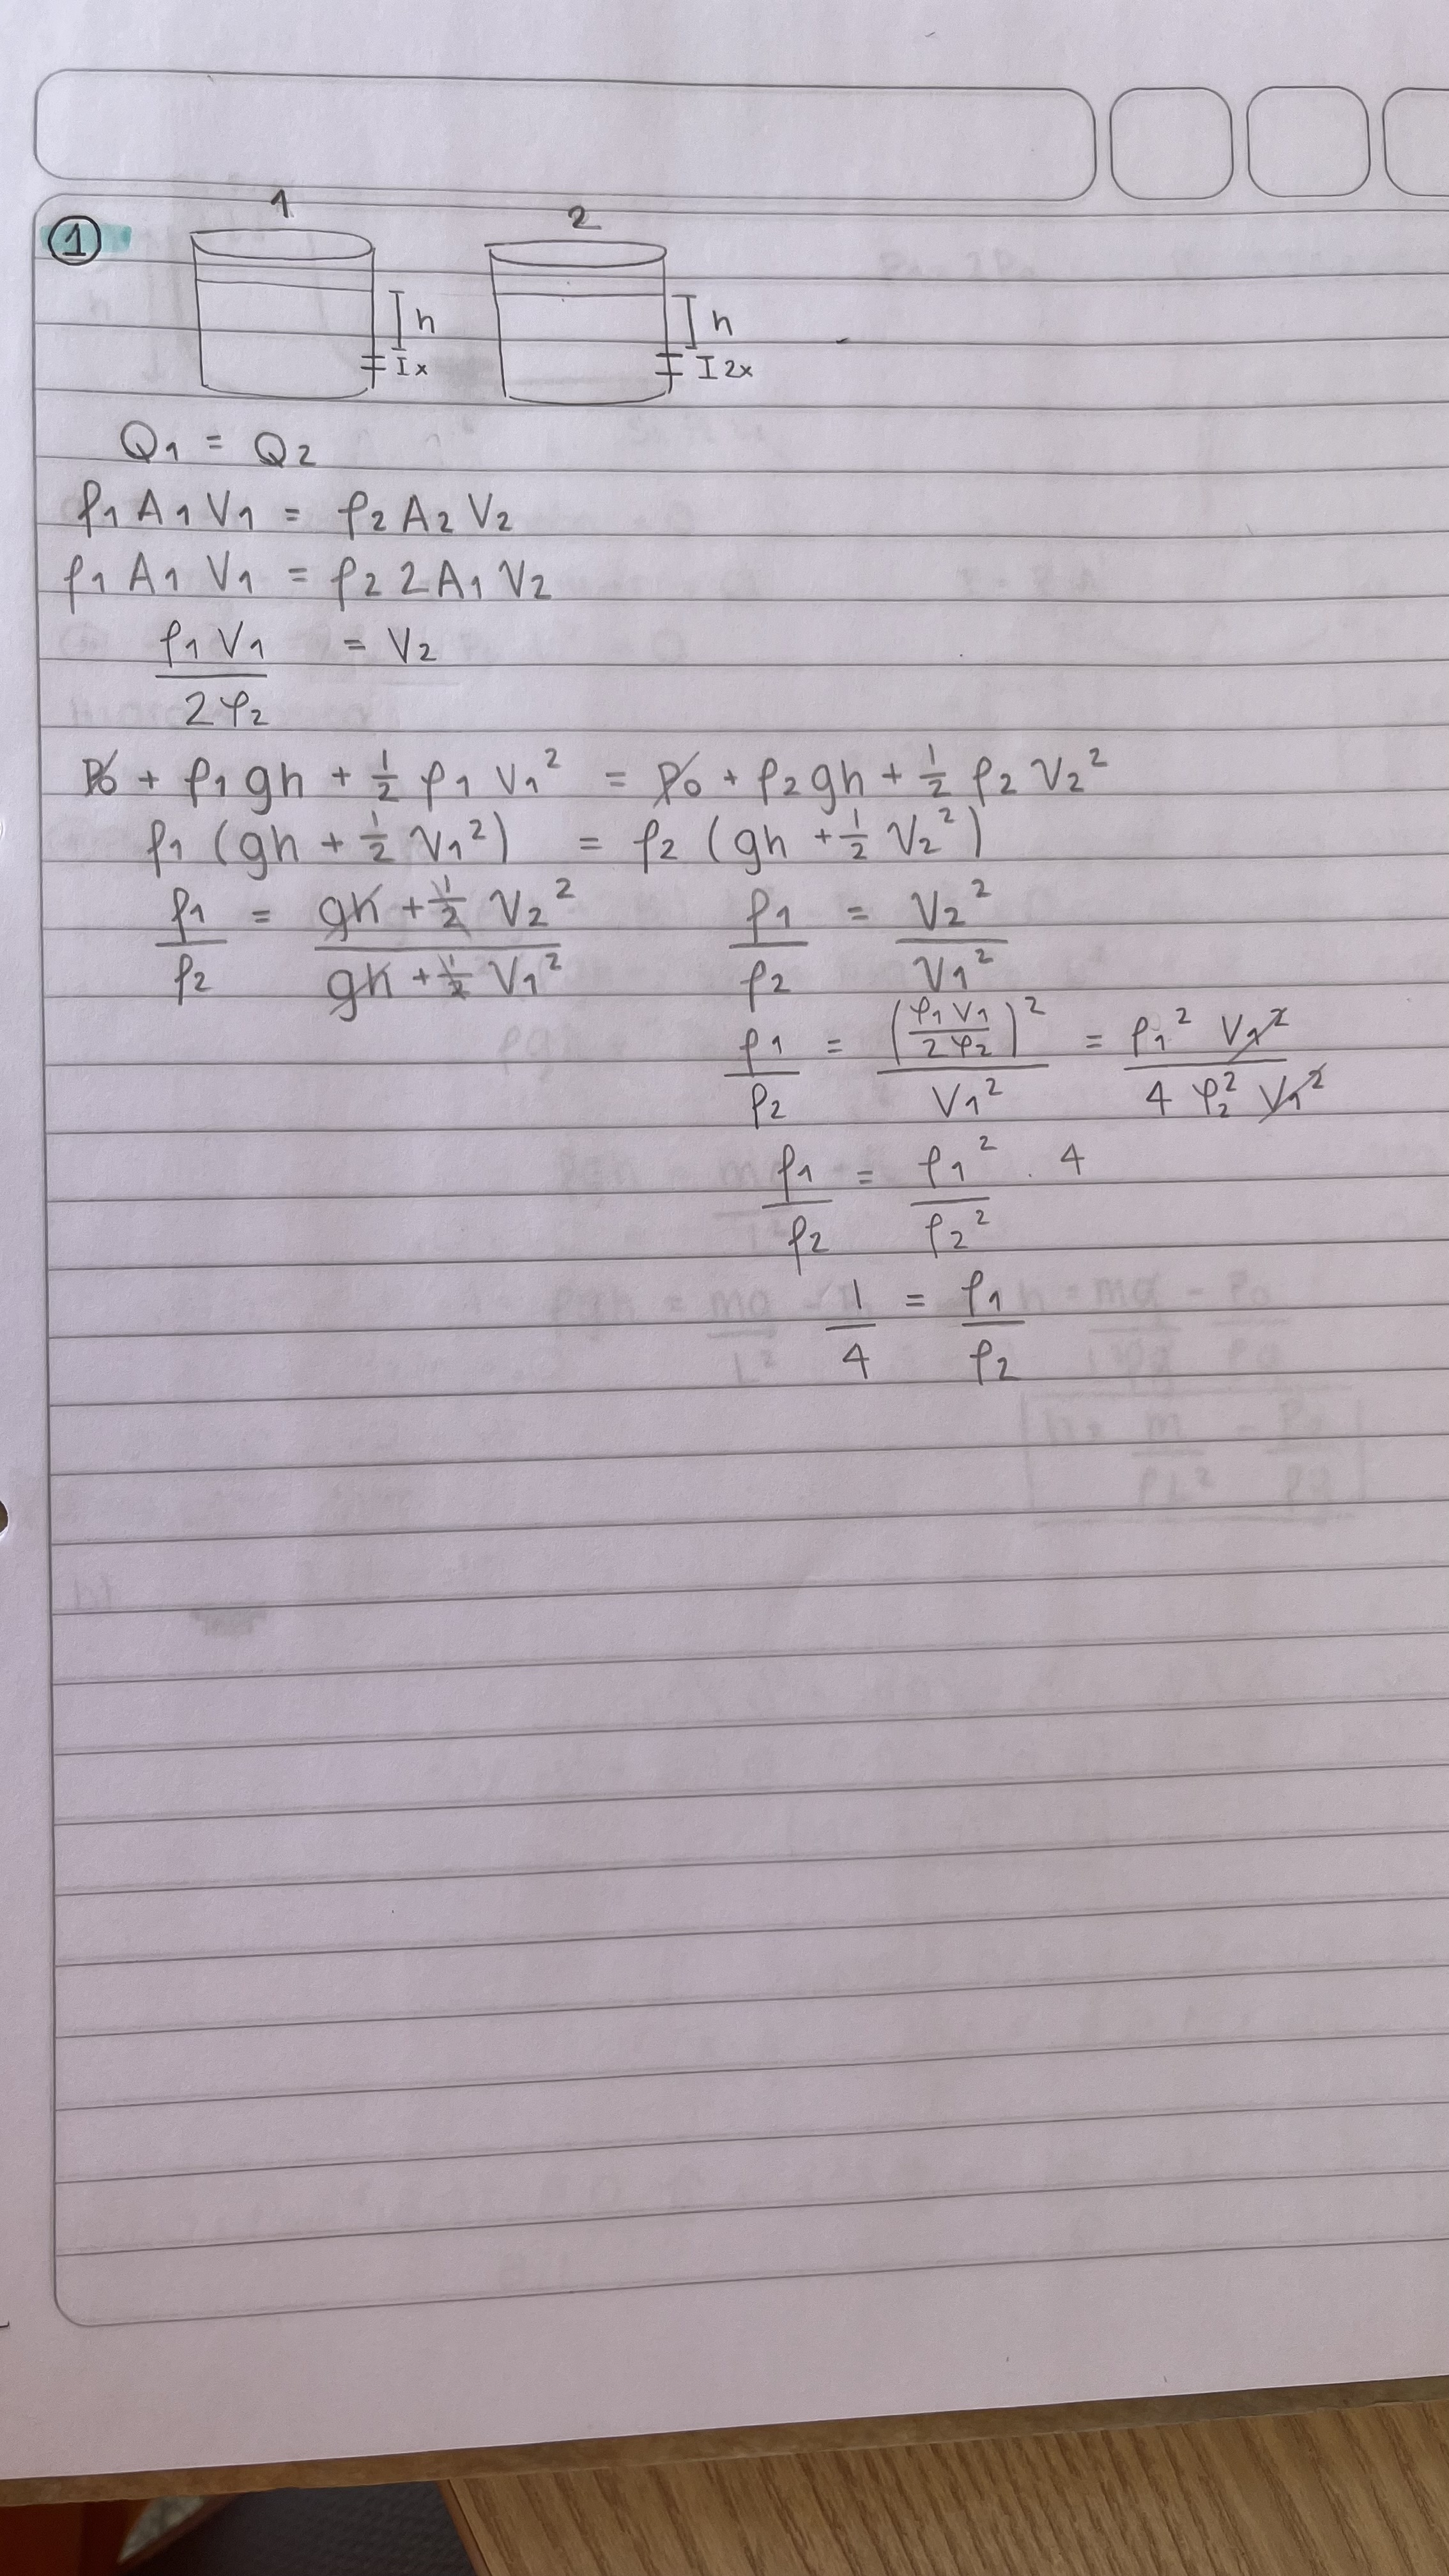 1 2
①
h h
x 2x
Q₁ = Q₂
ρ₁ A₁ V₁ = ρ₂ A₂ V₂
ρ₁ A₁ V₁ = ρ₂ 2A₁ V₂
ρ₁ V₁ / 2ρ₂ = V₂
P₀ + ρ₁ gh + 1/2 ρ₁ V₁² = P₀ + ρ₂ gh + 1/2 ρ₂ V₂²
ρ₁ (gh + 1/2 V₁²) = ρ₂ (gh + 1/2 V₂²)
ρ₁/ρ₂ = (gh + 1/2 V₂²)/(gh + 1/2 V₁²) ρ₁/ρ₂ = V₂²/V₁²
ρ₁/ρ₂ = (ρ₁ V₁/2ρ₂)²/V₁² = ρ₁² V₁²/4 ρ₂² V₁²
ρ₁/ρ₂ = ρ₁²/ρ₂² . 4
1/4 = ρ₁/ρ₂